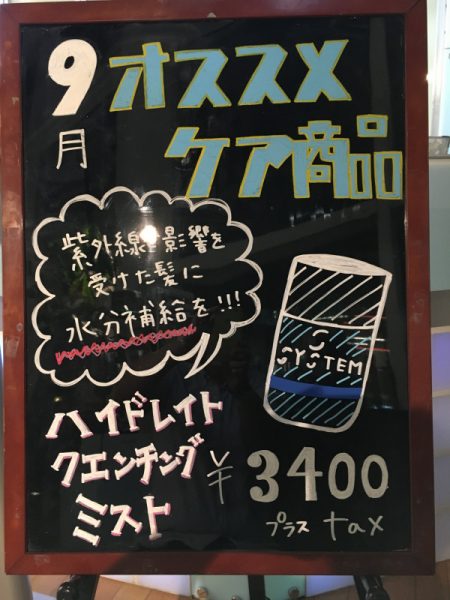 9月 オススメ
ケア商品
紫外線の影響を
受けた髪に
水分補給を!!!
S
SYSTEM
ハイドレイト
クエンチング
ミスト
¥3400
プラス tax